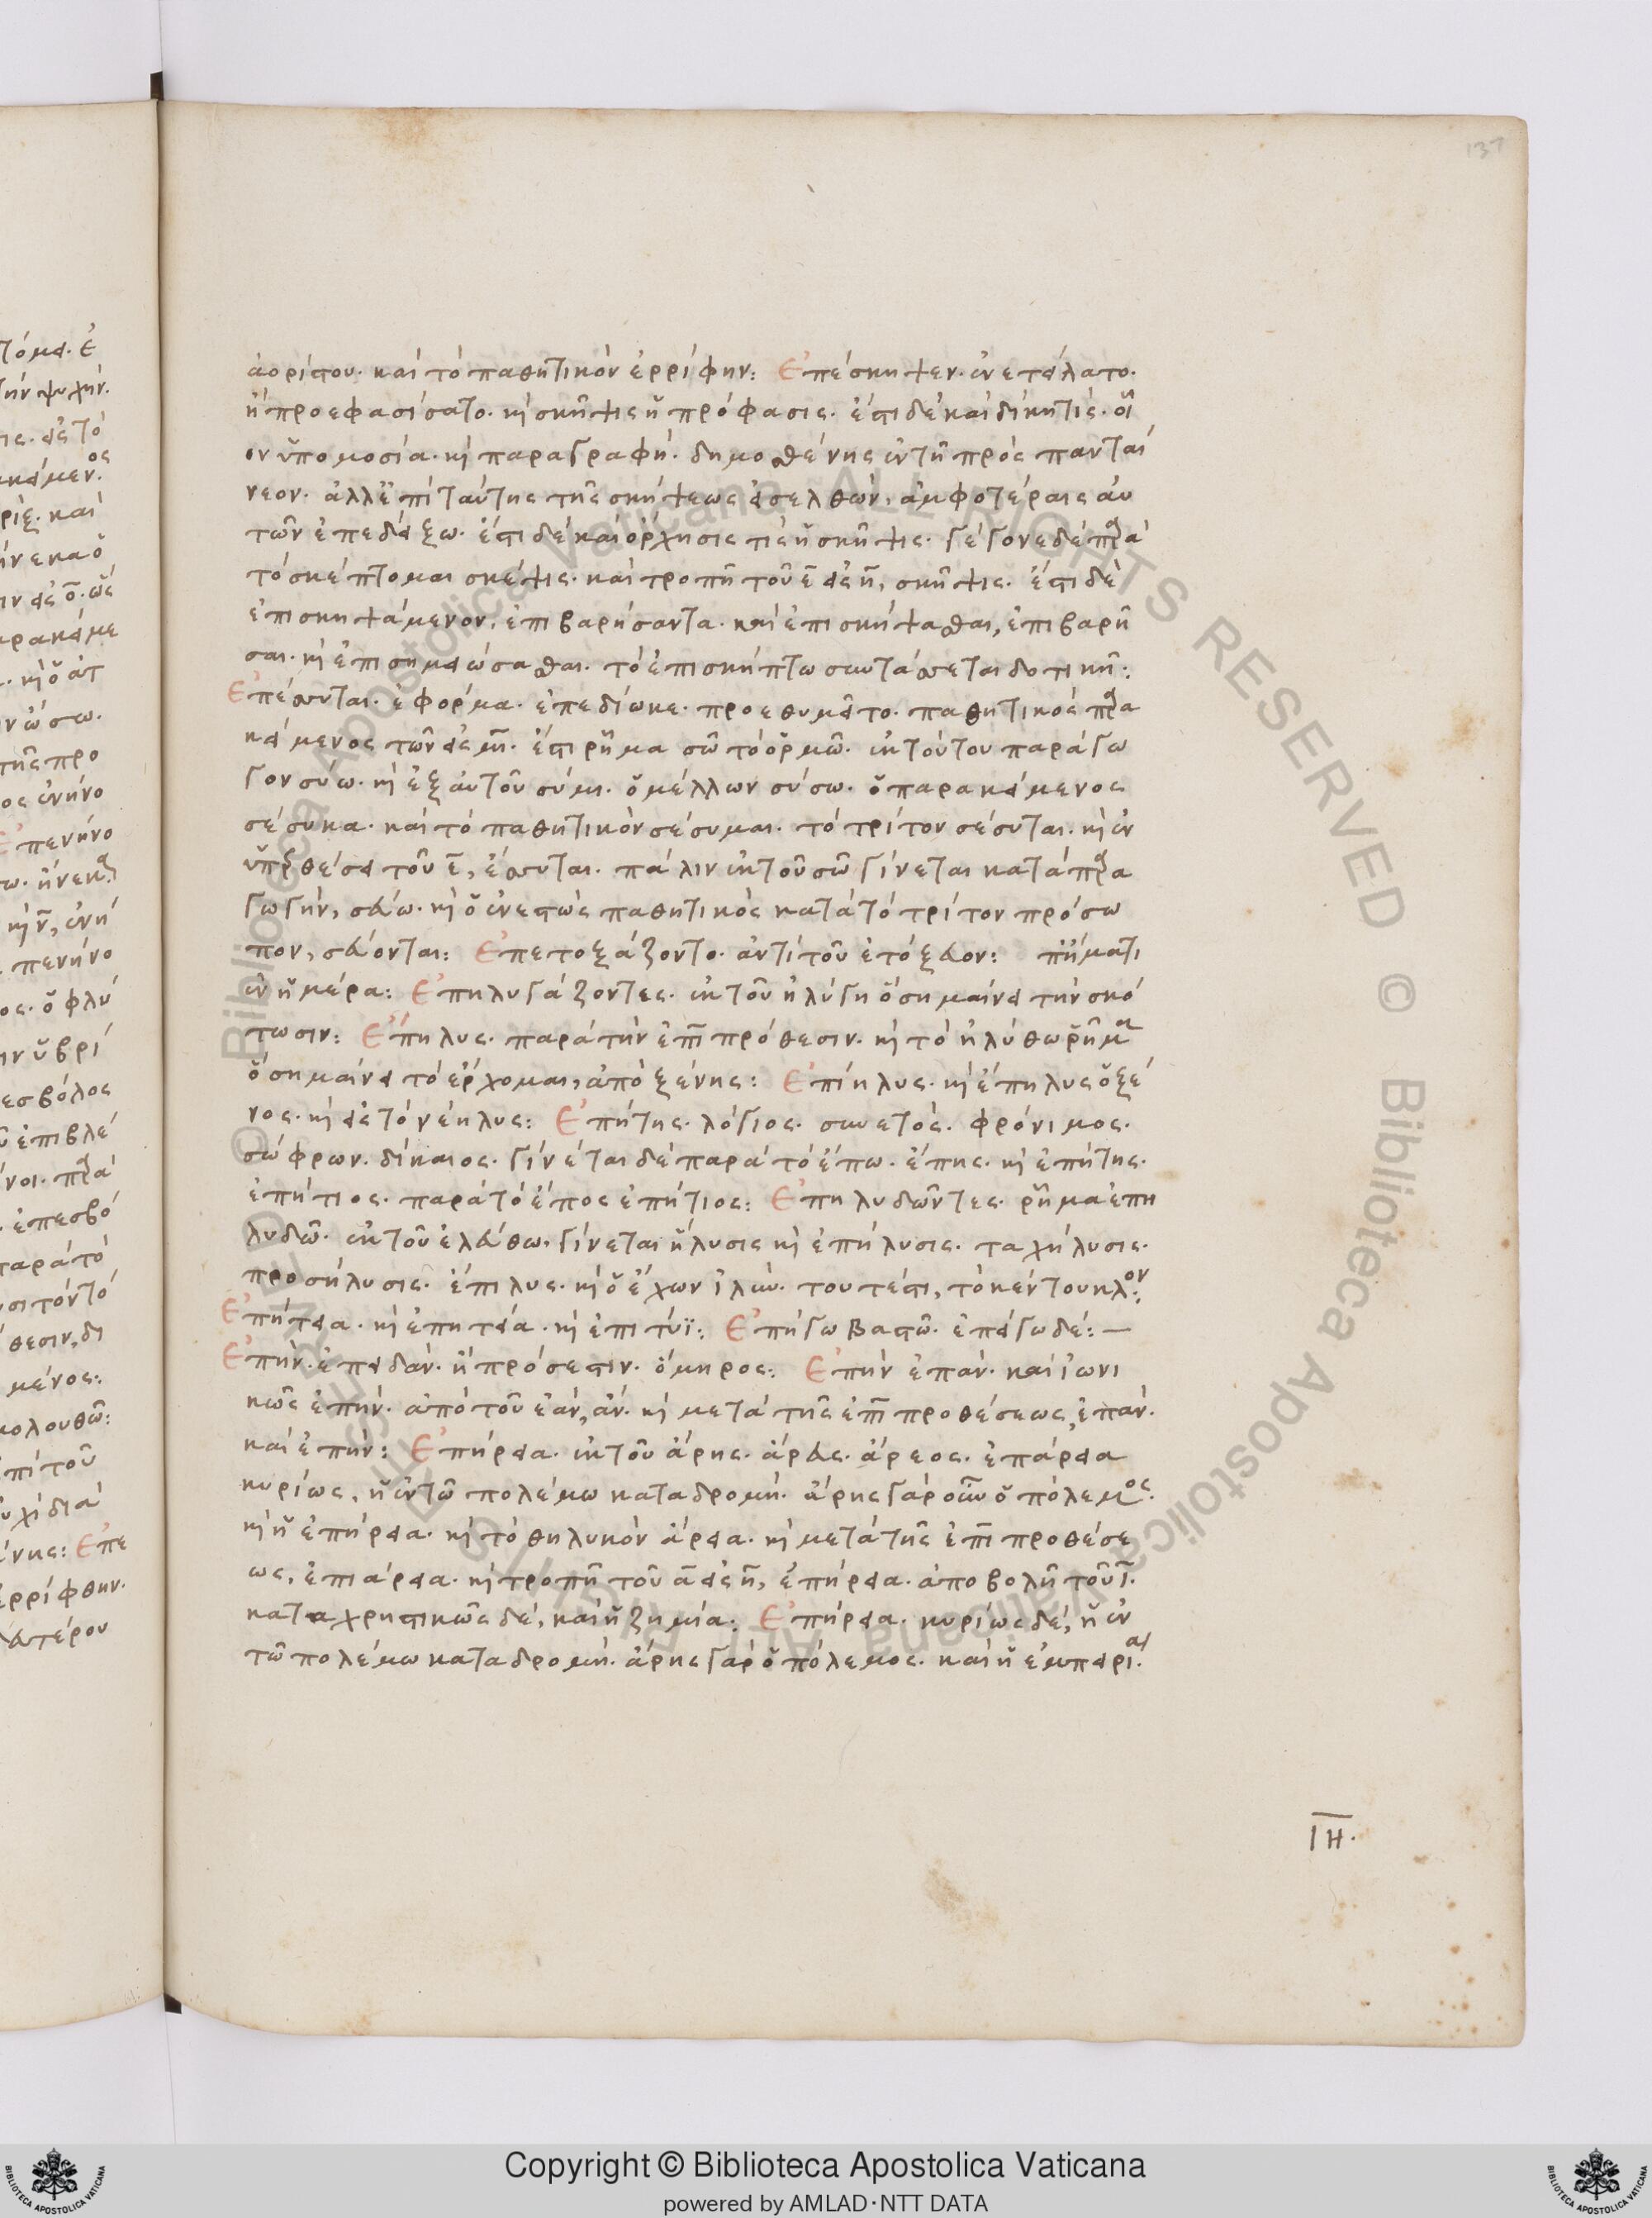 137
ἀορίστου. καὶ τὸ παθητικὸν ἐρρίφην: Ἐπέσκηψεν. ἐνετείλατο.
ἢ προεφασίσατο. κὶ σκῆψις ἡ πρόφασις. ἔστι δὲ καὶ δίκη τίς. οἷ
ον ὑπομοσία. κὶ παραγραφή. δημοσθένης ἐν τῆ πρὸς πανταί
νεον. ἀλλ' ἐπὶ ταύτης τῆς σκήψεως εἰσελθὼν, ἀμφοτέραις αὐ
τῶν ἐπεδείξω. ἔστι δὲ καὶ ὄρχησις τὶς ἡ σκῆψις. γέγονε δὲ πρὰ
τὸ σκέπτομαι σκέψις. καὶ τροπῆ τοῦ ε εἰς η, σκῆψις. ἔστι δὲ
ἐπισκηψάμενον, ἐπιβαρήσαντα. καὶ ἐπισκήψασθαι, ἐπιβαρῆ
σαι. κὶ ἐπισημειώσασθαι. τὸ ἐπισκήπτω συντάσσεται δοτικῆ:
Ἐπέσσυται. ἐφορμᾶ. ἐπεδίωκε. προεθυμεῖτο. παθητικὸς πρα
κείμενος τῶν εἰς μι. ἔστι ρῆμα σῶ τὸ ὁρμῶ. ἐκ τούτου παράγω
γον σύω. κὶ ἐξ αὐτοῦ σύμι. ὁ μέλλων σύσω. ὁ παρακείμενος
σέσυκα. καὶ τὸ παθητικὸν σέσυμαι. τὸ τρίτον σέσυται. κὶ ἐν
ὑπρθέσει τοῦ ε, ἔσσυται. πάλιν ἐκ τοῦ σῶ γίνεται κατὰ πρα
γωγὴν, σεύω. κὶ ὁ ἐνεστὼς παθητικὸς κατὰ τὸ τρίτον πρόσω
πον, σεύονται: Ἐπετοξάζοντο. ἀντὶ τοῦ ἐτόξευον: πήματι
ἐν ἡμέρα: Ἐπηλυγάζοντες. ἐκ τοῦ ἠλύγη ὃ σημαίνει τὴν σκό
τωσιν: Ἔπηλυς. παρὰ τὴν ἐπὶ πρόθεσιν. κὶ τὸ ἠλύθω ρῆμα
ὃ σημαίνει τὸ ἔρχομαι, ἀπὸ ξένης: Ἐπίηλυς. κὶ ἔπηλυς ὁ ξέ
νος. κὶ εἰς τὸ νέηλυς: Ἐπήτης. λόγιος. συνετός. φρόνιμος.
σώφρων. δίκαιος. γίνεται δὲ παρὰ τὸ ἔπω. ἔπης. κὶ ἐπήτης.
ἐπήτιος. παρὰ τὸ ἔπος ἐπήτιος: Ἐπηλυδῶντες. ρῆμα ἐπη
λυδῶ. ἐκ τοῦ ἐλεύθω, γίνεται ἤλυσις κὶ ἐπήλυσις. ταχήλυσις.
προσήλυσις. ἔπιλυς. κὶ ὁ ἔχων ἰλύν. τουτέστι, τὸ κέντουκλον:
Ἐπήτεια. κὶ ἐπητεία. κὶ ἐπιτύϊ: Ἐπήγω βαστῶ. ἐπείγω δέ: —
Ἐπήν. ἐπειδάν. ἢ πρόσεστιν. ὅμηρος: Ἐπὴν ἐπάν. καὶ ἰωνι
κῶς ἐπήν. ἀπὸ τοῦ ἐὰν, ἄν. κὶ μετὰ τῆς ἐπὶ προθέσεως, ἐπάν.
καὶ ἐπήν: Ἐπήρεια. ἐκ τοῦ ἄρης. ἄρεως. ἄρεος. ἐπάρεια
κυρίως, ἡ ἐν τῶ πολέμω καταδρομή. ἄρης γὰρ οὖν ὁ πόλεμος.
κὶ ἡ ἐπήρεια. κὶ τὸ θηλυκὸν ἄρεια. κὶ μετὰ τῆς ἐπὶ προθέσε
ως, ἐπιάρεια. κὶ τροπῆ τοῦ α εἰς η, ἐπήρεια. ἀποβολῆ τοῦ ι.
καταχρηστικῶς δὲ, καὶ ἡ ζημία: Ἐπήρεια. κυρίως δὲ, ἡ ἐν
τῶ πολέμω καταδρομή. ἄρης γὰρ ὁ πόλεμος. καὶ ἡ ἐμπειρία.
ΙΗ.
Copyright © Biblioteca Apostolica Vaticana
powered by AMLAD・NTT DATA